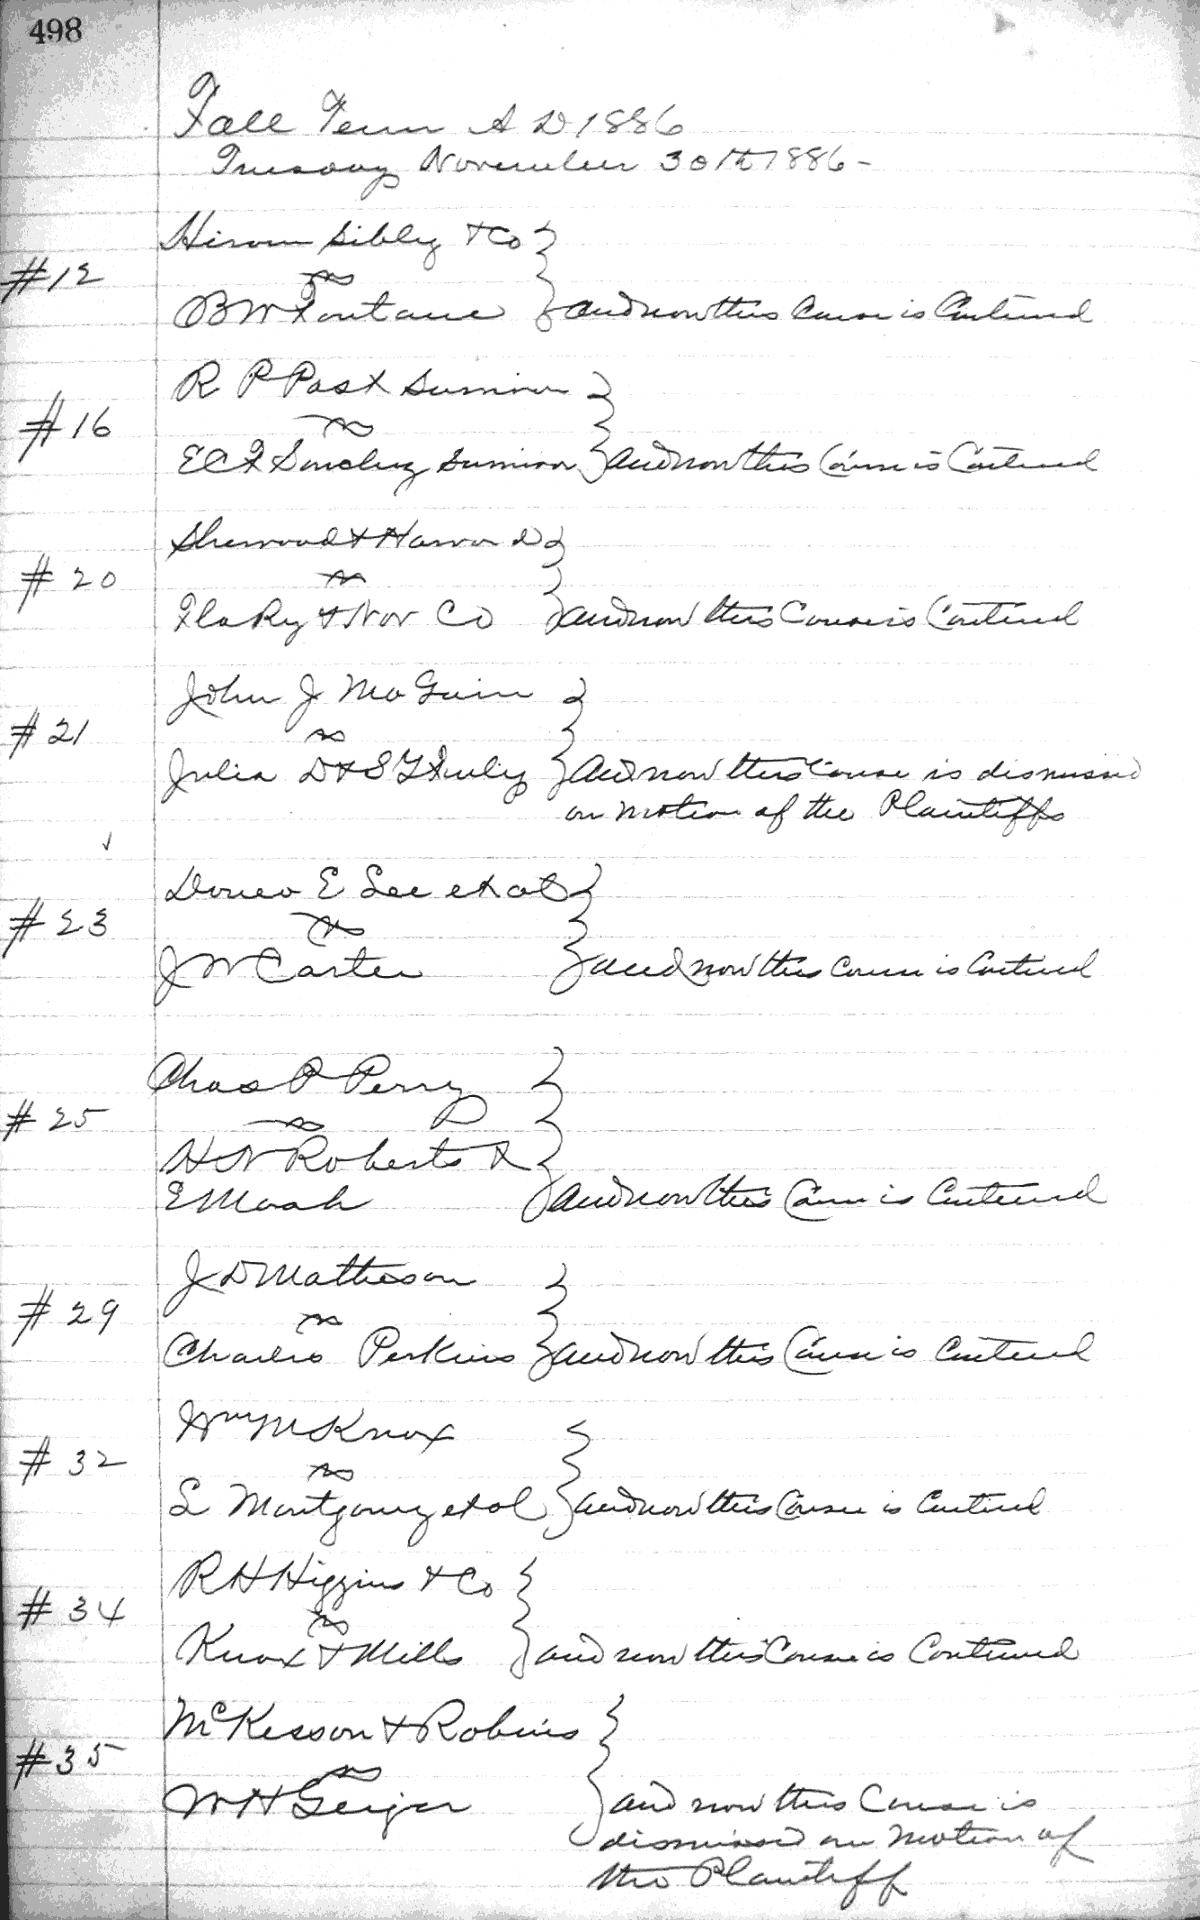 498
Fall Term A D 1886
Tuesday November 30th 1886-
Hiram Sibley & Co
#12 vs
B W Fontane } and now this Cause is Continued
R P Post Survivor
#16 vs
E C F Sanchez Survivor } and now this Cause is Continued
Sherwood &
#20 vs
Fla Ry & Nav Co } and now this Cause is Continued
John J McGuin
#21 vs
Julia D & S G } and now this Cause is dismissed
on motion of the Plaintiffs
E Lee et al
#23 vs
J W Carter } and now this Cause is Continued
Chas P Perry
#25 vs
H N Roberts &
E Mash } and now this Cause is Continued
J D Matheson
#29 vs
Charles Perkins } and now this Cause is Continued
Wm M Knox
#32 vs
L Montgomery et al } and now this Cause is Continued
R H Higgins & Co
#34 vs
Knox & Mills } and now this Cause is Continued
McKesson & Robins
#35 vs
W H Geiger } and now this Cause is
dismissed on motion of
the Plaintiff